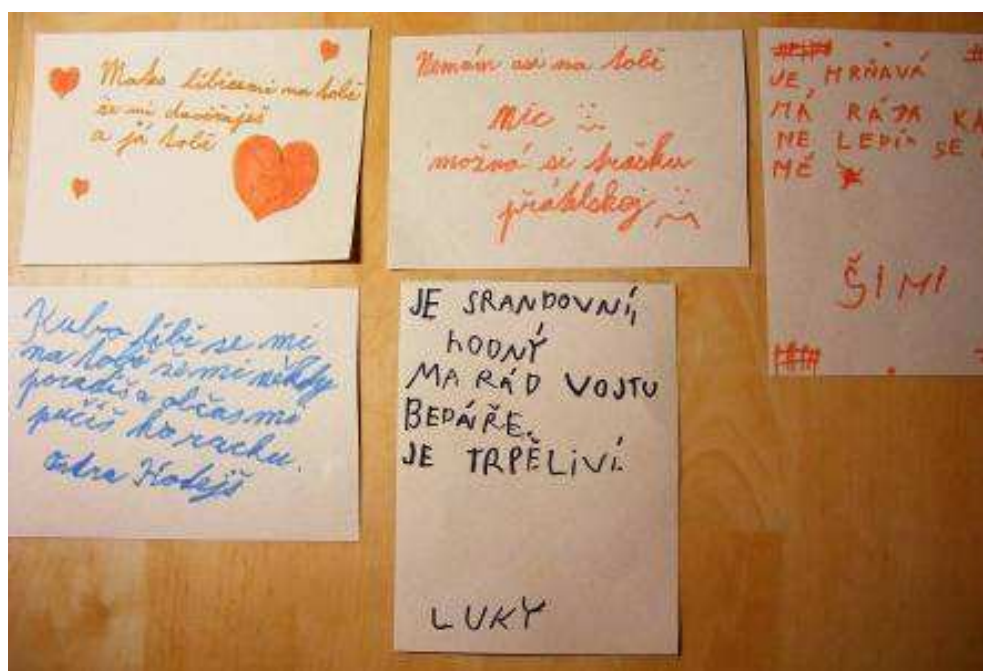 Mako líbísemi na tobě
že mi duvěřuješ
a já tobě
Nemám asi na tobě
nic
možná si trášku
přátelskej
JE MRŇAVÁ
MÁ RÁDA KA
NE LEPÍ SE
MĚ
ŠIMI
Kubo líbi se mi
na tobě že mi někdy
poradíš a občas mi
pučíš ho
JE SRANDOVNÍ,
HODNÝ
MA RÁD VOJTU
BEDÁŘE.
JE TRPĚLIVÍ.
LUKY